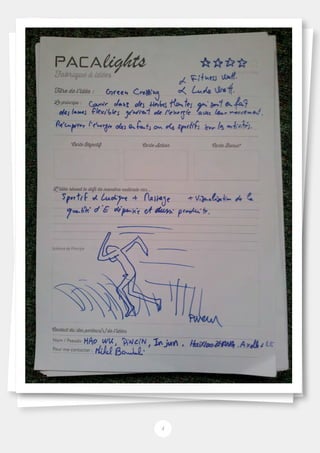 PACAlights
Fabrique à idées
Titre de l'idée : Green Crossing
& Fitness Watt
& Ludo Watt
Le principe : Courir dans des herbes flottantes qui sont en fait
des lames flexibles générant de l'énergie avec leur mouvement.
Récupérer l'énergie des enfants ou des sportifs sur les activités.
Carte Objectif
Carte Action
Carte Bonus
L'idée résout le défi de manière originale car...
Sportif & Ludique + Massage + Visualisation de la
quantité d'E dépensée et aussi produite.
Schéma de Principe
Contact du-des porteur(s) de l'idée
Nom / Pseudo : HAO WU,
Pour me contacter : Michel